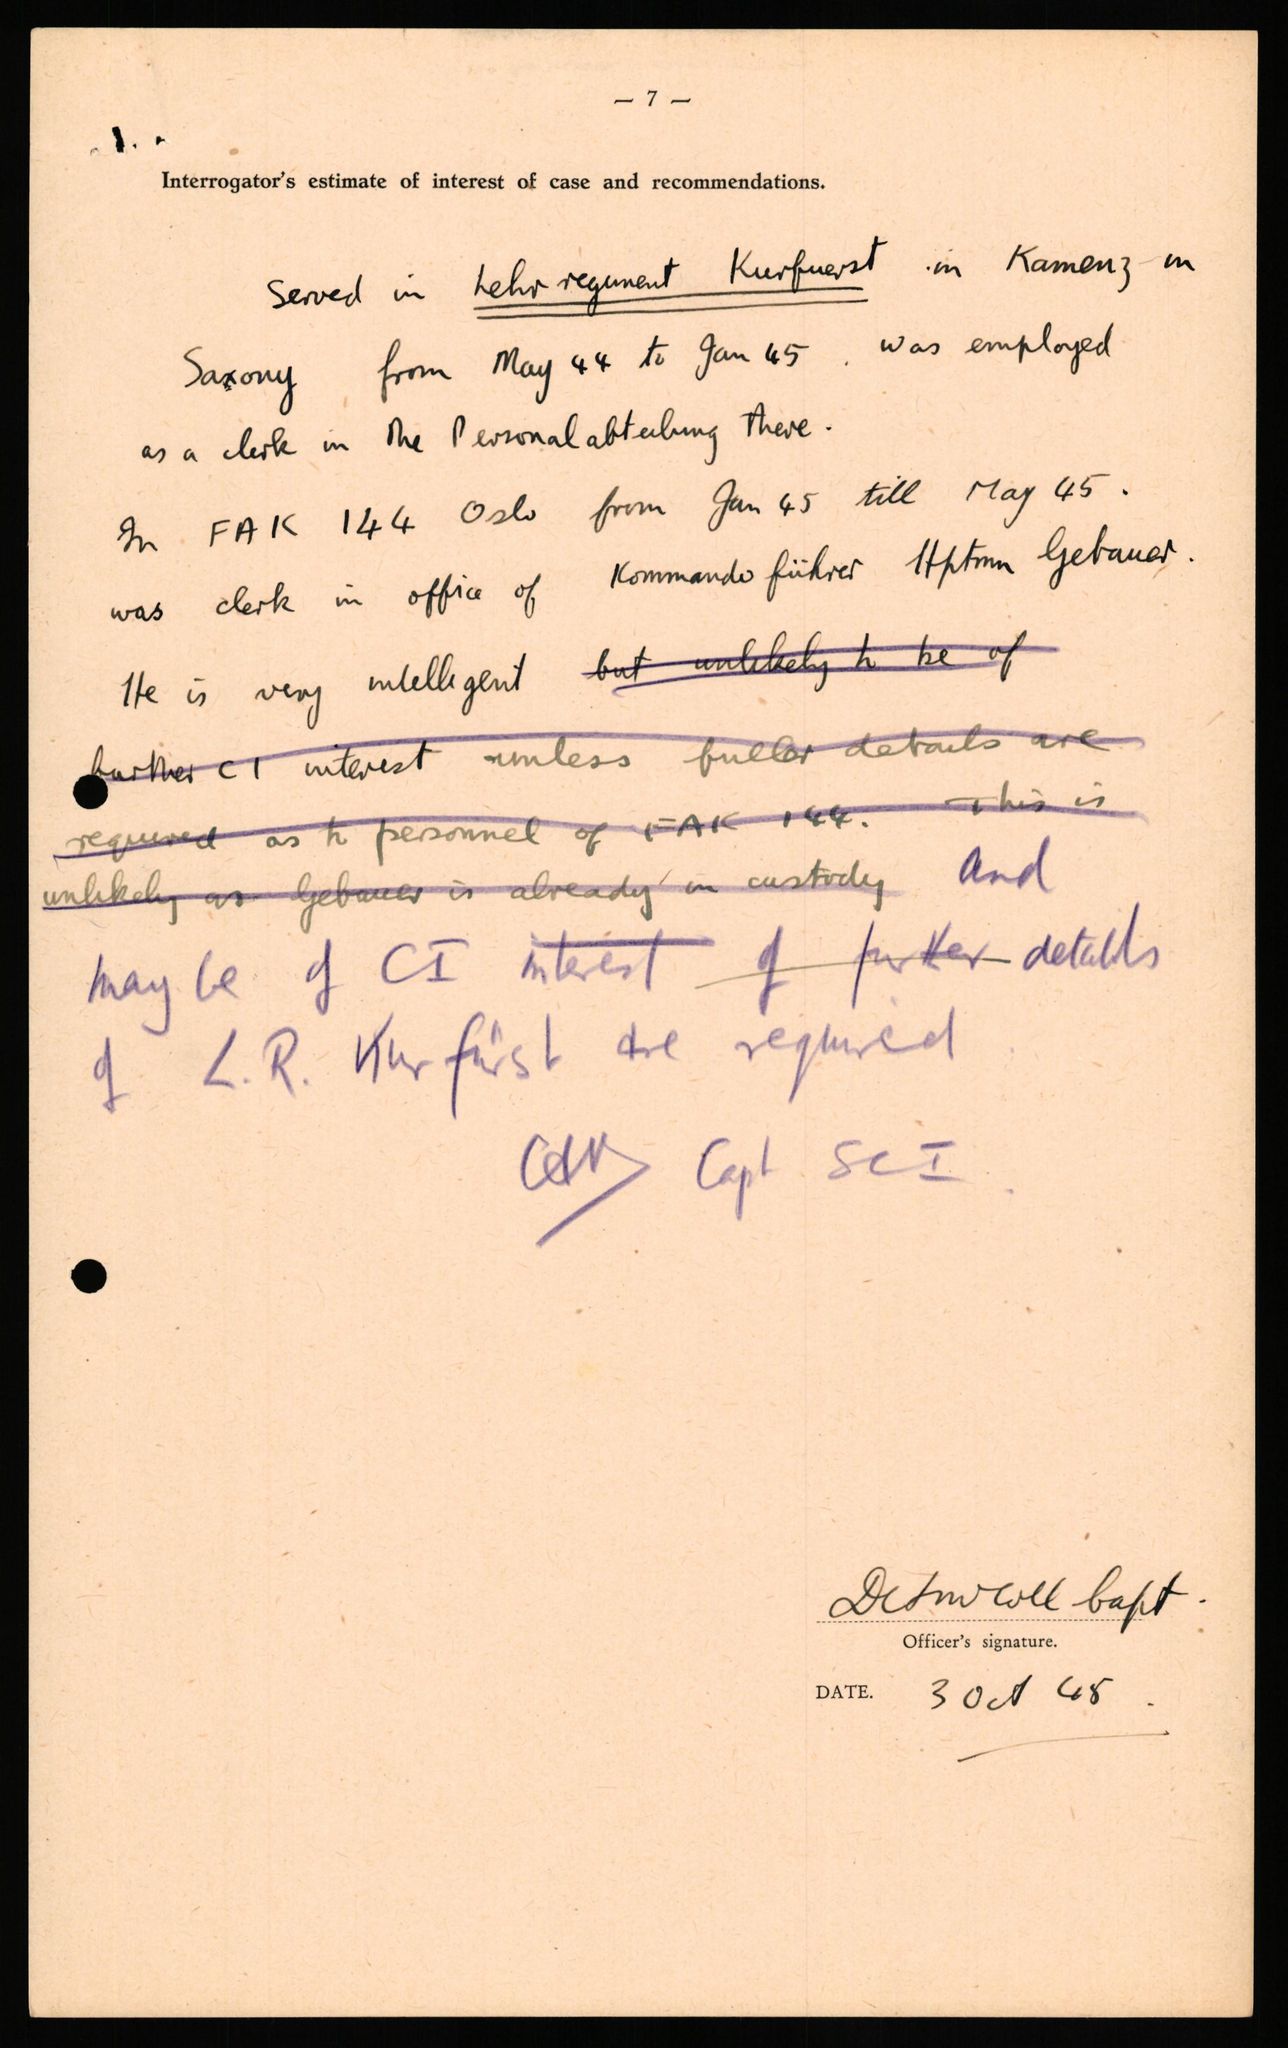 — 7 —
Interrogator's estimate of interest of case and recommendations.
Served in Lehrregiment Kurfuerst in Kamenz in
Saxony from May 44 to Jan 45. was employed
as a clerk in the Personalabteilung there.
In FAK 144 Oslo from Jan 45 till May 45.
was clerk in office of Kommandoführer Hptmn Gebauer.
He is very intelligent but unlikely to be of
further CI interest unless fuller details are
required as to personnel of FAK 144. This is
unlikely as Gebauer is already in custody and
may be of CI interest if further details
of L.R. Kurfürst are required.
Capt SCI.
Capt.
Officer's signature.
DATE. 3 Oct 45.